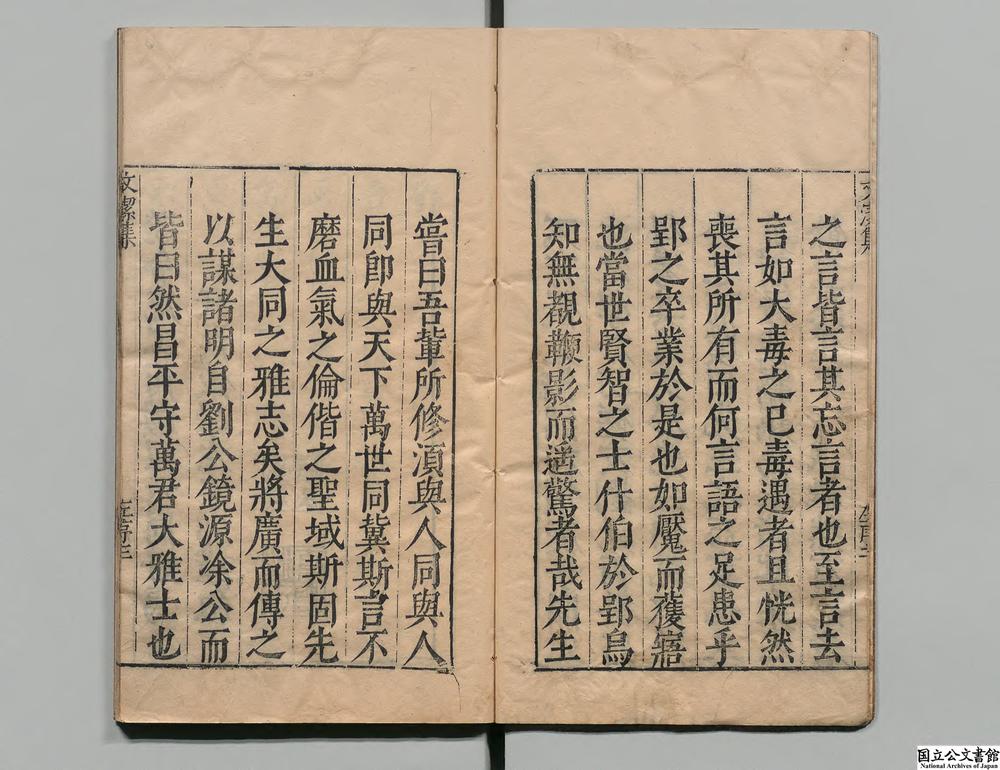 之言皆言其忘言者也至言去
言如大毒之已毒遇者且恍然
喪其所有而何言語之足患乎
郢之卒業於是也如魘而獲寤
也當世賢智之士什伯於郢烏
知無覩鞭影而遄驚者哉先生
嘗曰吾輩所修湏與人同與人
同卽與天下萬世同冀斯言不
磨血氣之倫偕之聖域斯固先
生大同之雅志矣將廣而傳之
以謀諸明自劉公鏡源凃公而
皆曰然昌平守萬君大雅士也
文潔集
国立公文書館
National Archives of Japan